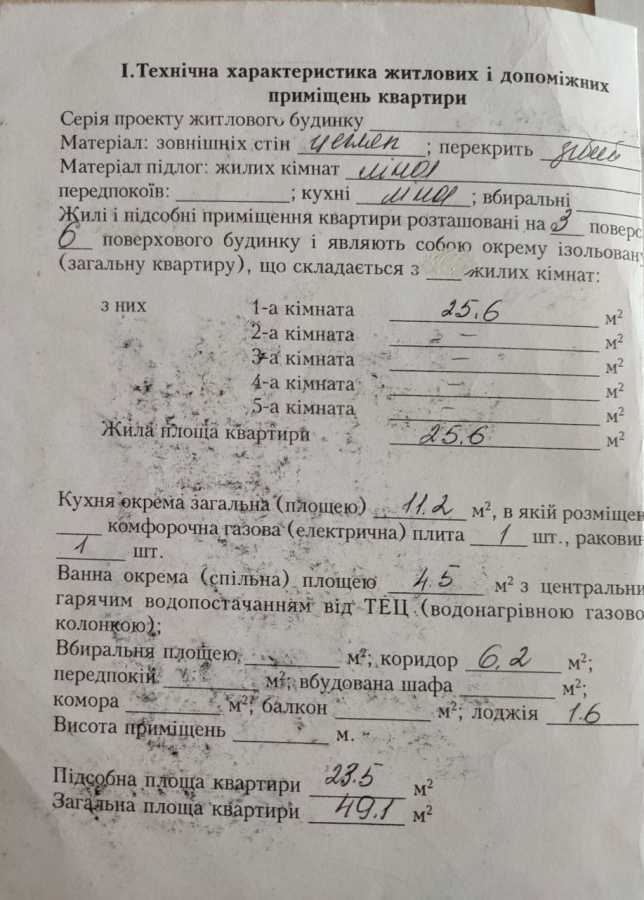 І.Технічна характеристика житлових і допоміжних
приміщень квартири
Серія проекту житлового будинку
Матеріал: зовнішніх стін цеглян ; перекрить
Матеріал підлог: жилих кімнат лінол
передпокоїв: ; кухні лінол ; вбиральні
Жилі і підсобні приміщення квартири розташовані на 3 поверс
6 поверхового будинку і являють собою окрему ізольован
(загальну квартиру), що складається з жилих кімнат:
з них 1-а кімната 25,6 м²
2-а кімната – м²
3-а кімната – м²
4-а кімната – м²
5-а кімната – м²
Жила площа квартири 25.6 м²
Кухня окрема загальна (площею) 11.2 м², в якій розміщен
комфорочна газова (електрична) плита 1 шт., раковин
1 шт.
Ванна окрема (спільна) площею 4.5 м² з центральни
гарячим водопостачанням від ТЕЦ (водонагрівною газово
колонкою);
Вбиральня площею м²; коридор 6,2 м²;
передпокій м²; вбудована шафа м²;
комора м²; балкон м²; лоджія 1.6
Висота приміщень м.
Підсобна площа квартири 23.5 м²
Загальна площа квартири 49.1 м²